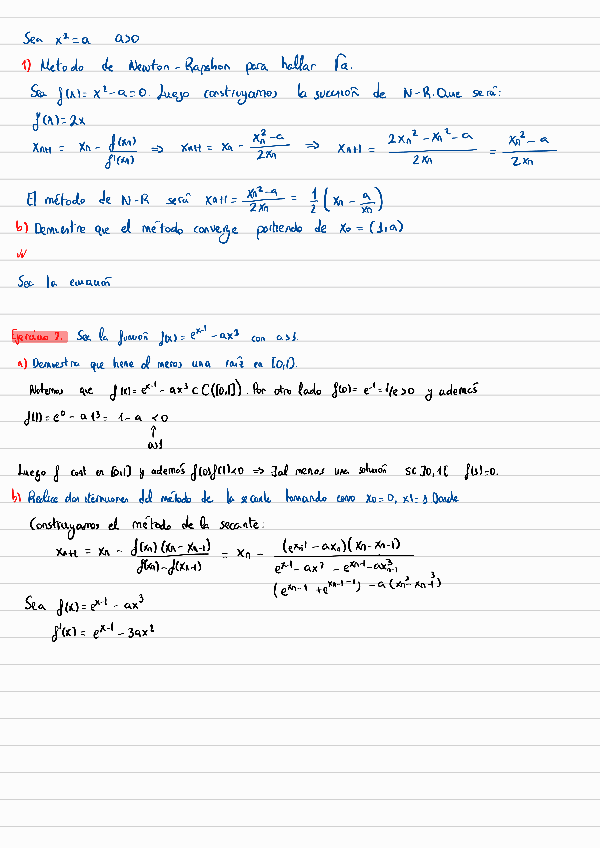 Sea x² = a a>0
1) Metodo de Newton-Rapshon para hallar √a.
Sea f(x) = x² - a = 0. Luego construyamos la sucesión de N-R. Que será:
f'(x) = 2x
xₙ₊₁ = xₙ - f(xₙ)/f'(xₙ) ⇒ xₙ₊₁ = xₙ - (xₙ² - a)/(2xₙ) ⇒ xₙ₊₁ = (2xₙ² - xₙ² - a)/(2xₙ) = (xₙ² - a)/(2xₙ)
El método de N-R será xₙ₊₁ = (xₙ² - a)/(2xₙ) = 1/2 (xₙ - a/xₙ)
b) Demuestre que el método converge partiendo de x₀ = (1, a)
Sea la ecuación
Ejercicio 2. Sea la función f(x) = eˣ⁻¹ - ax³ con a>1.
a) Demuestra que tiene al menos una raíz en [0,1].
Notemos que f(x) = eˣ⁻¹ - ax³ ∈ C([0,1]). Por otro lado f(0) = e⁻¹ = 1/e > 0 y además
f(1) = e⁰ - a1³ = 1 - a < 0
↑
a>1
Luego f cont en [0,1] y además f(0)f(1)<0 ⇒ ∃ al menos una solución s∈]0,1[ f(s)=0.
b) Realice dos iteraciones del método de la secante tomando como x₀ = 0, x₁ = 1 Donde
Construyamos el método de la secante:
xₙ₊₁ = xₙ - f(xₙ)(xₙ - xₙ₋₁)/(f(xₙ) - f(xₙ₋₁)) = xₙ - (eˣⁿ⁻¹ - axₙ)(xₙ - xₙ₋₁)/(eˣ⁻¹ - ax³ - eˣⁿ⁻¹ - axₙ₋₁³)
(eˣⁿ⁻¹ + eˣⁿ⁻¹⁻¹) - a(xₙ³ - xₙ₋₁³)
Sea f(x) = eˣ⁻¹ - ax³
f'(x) = eˣ⁻¹ - 3ax²